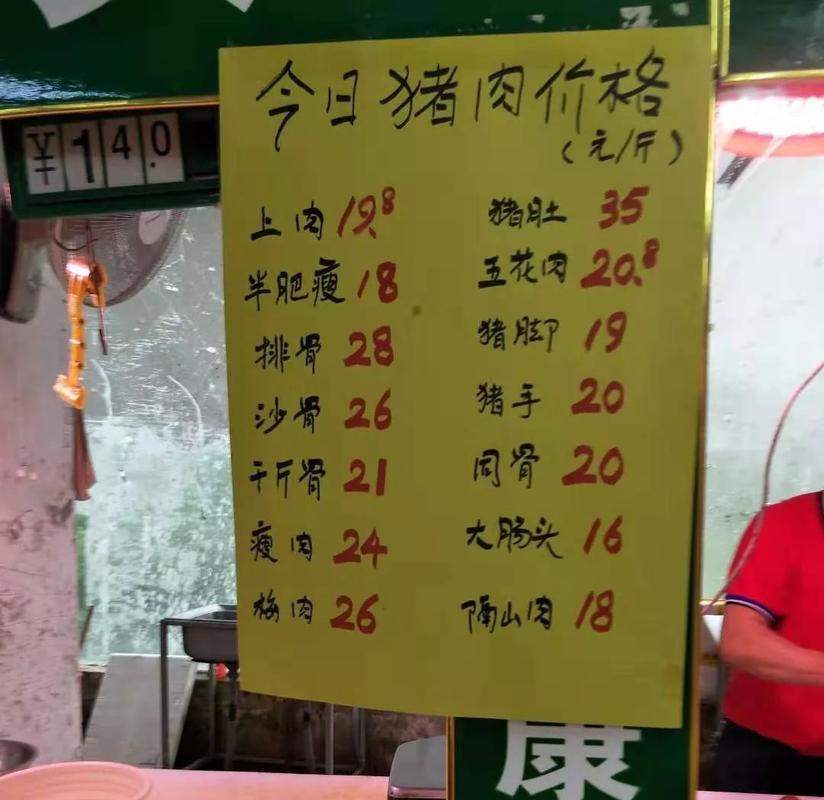 ¥ 14.0
今日猪肉价格
(元/斤)
上肉 19.8
半肥瘦 18
排骨 28
沙骨 26
千斤骨 21
瘦肉 24
梅肉 26
猪肚 35
五花肉 20.8
猪脚 19
猪手 20
同骨 20
大肠头 16
隔山肉 18
康